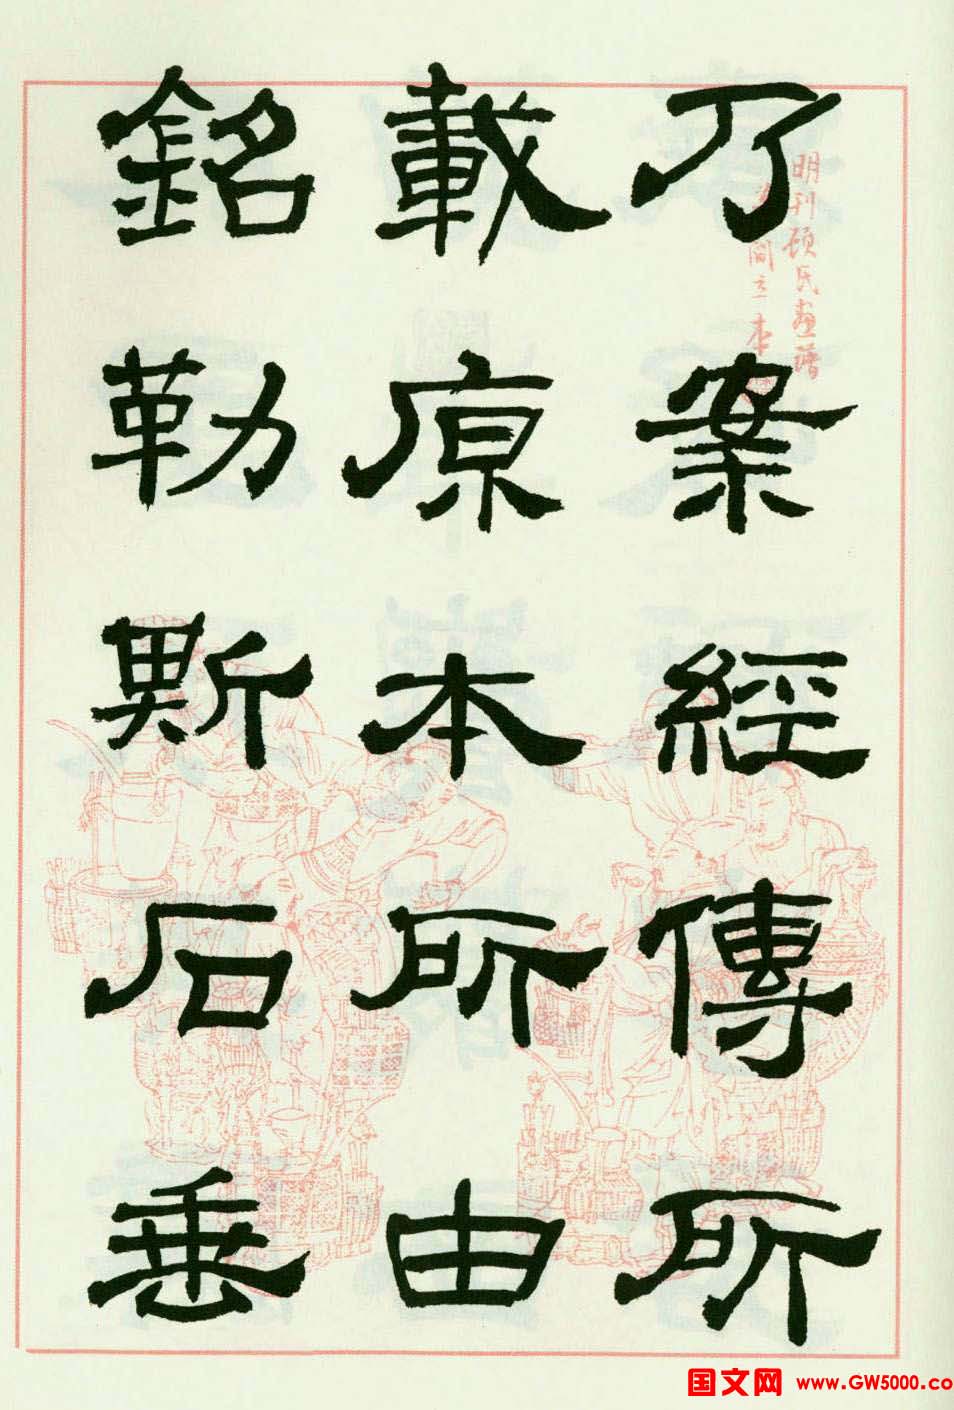 乃案經傳所
載原本所由
銘勒斯石垂
明刊顾氏画谱
国文网 www.GW5000.co